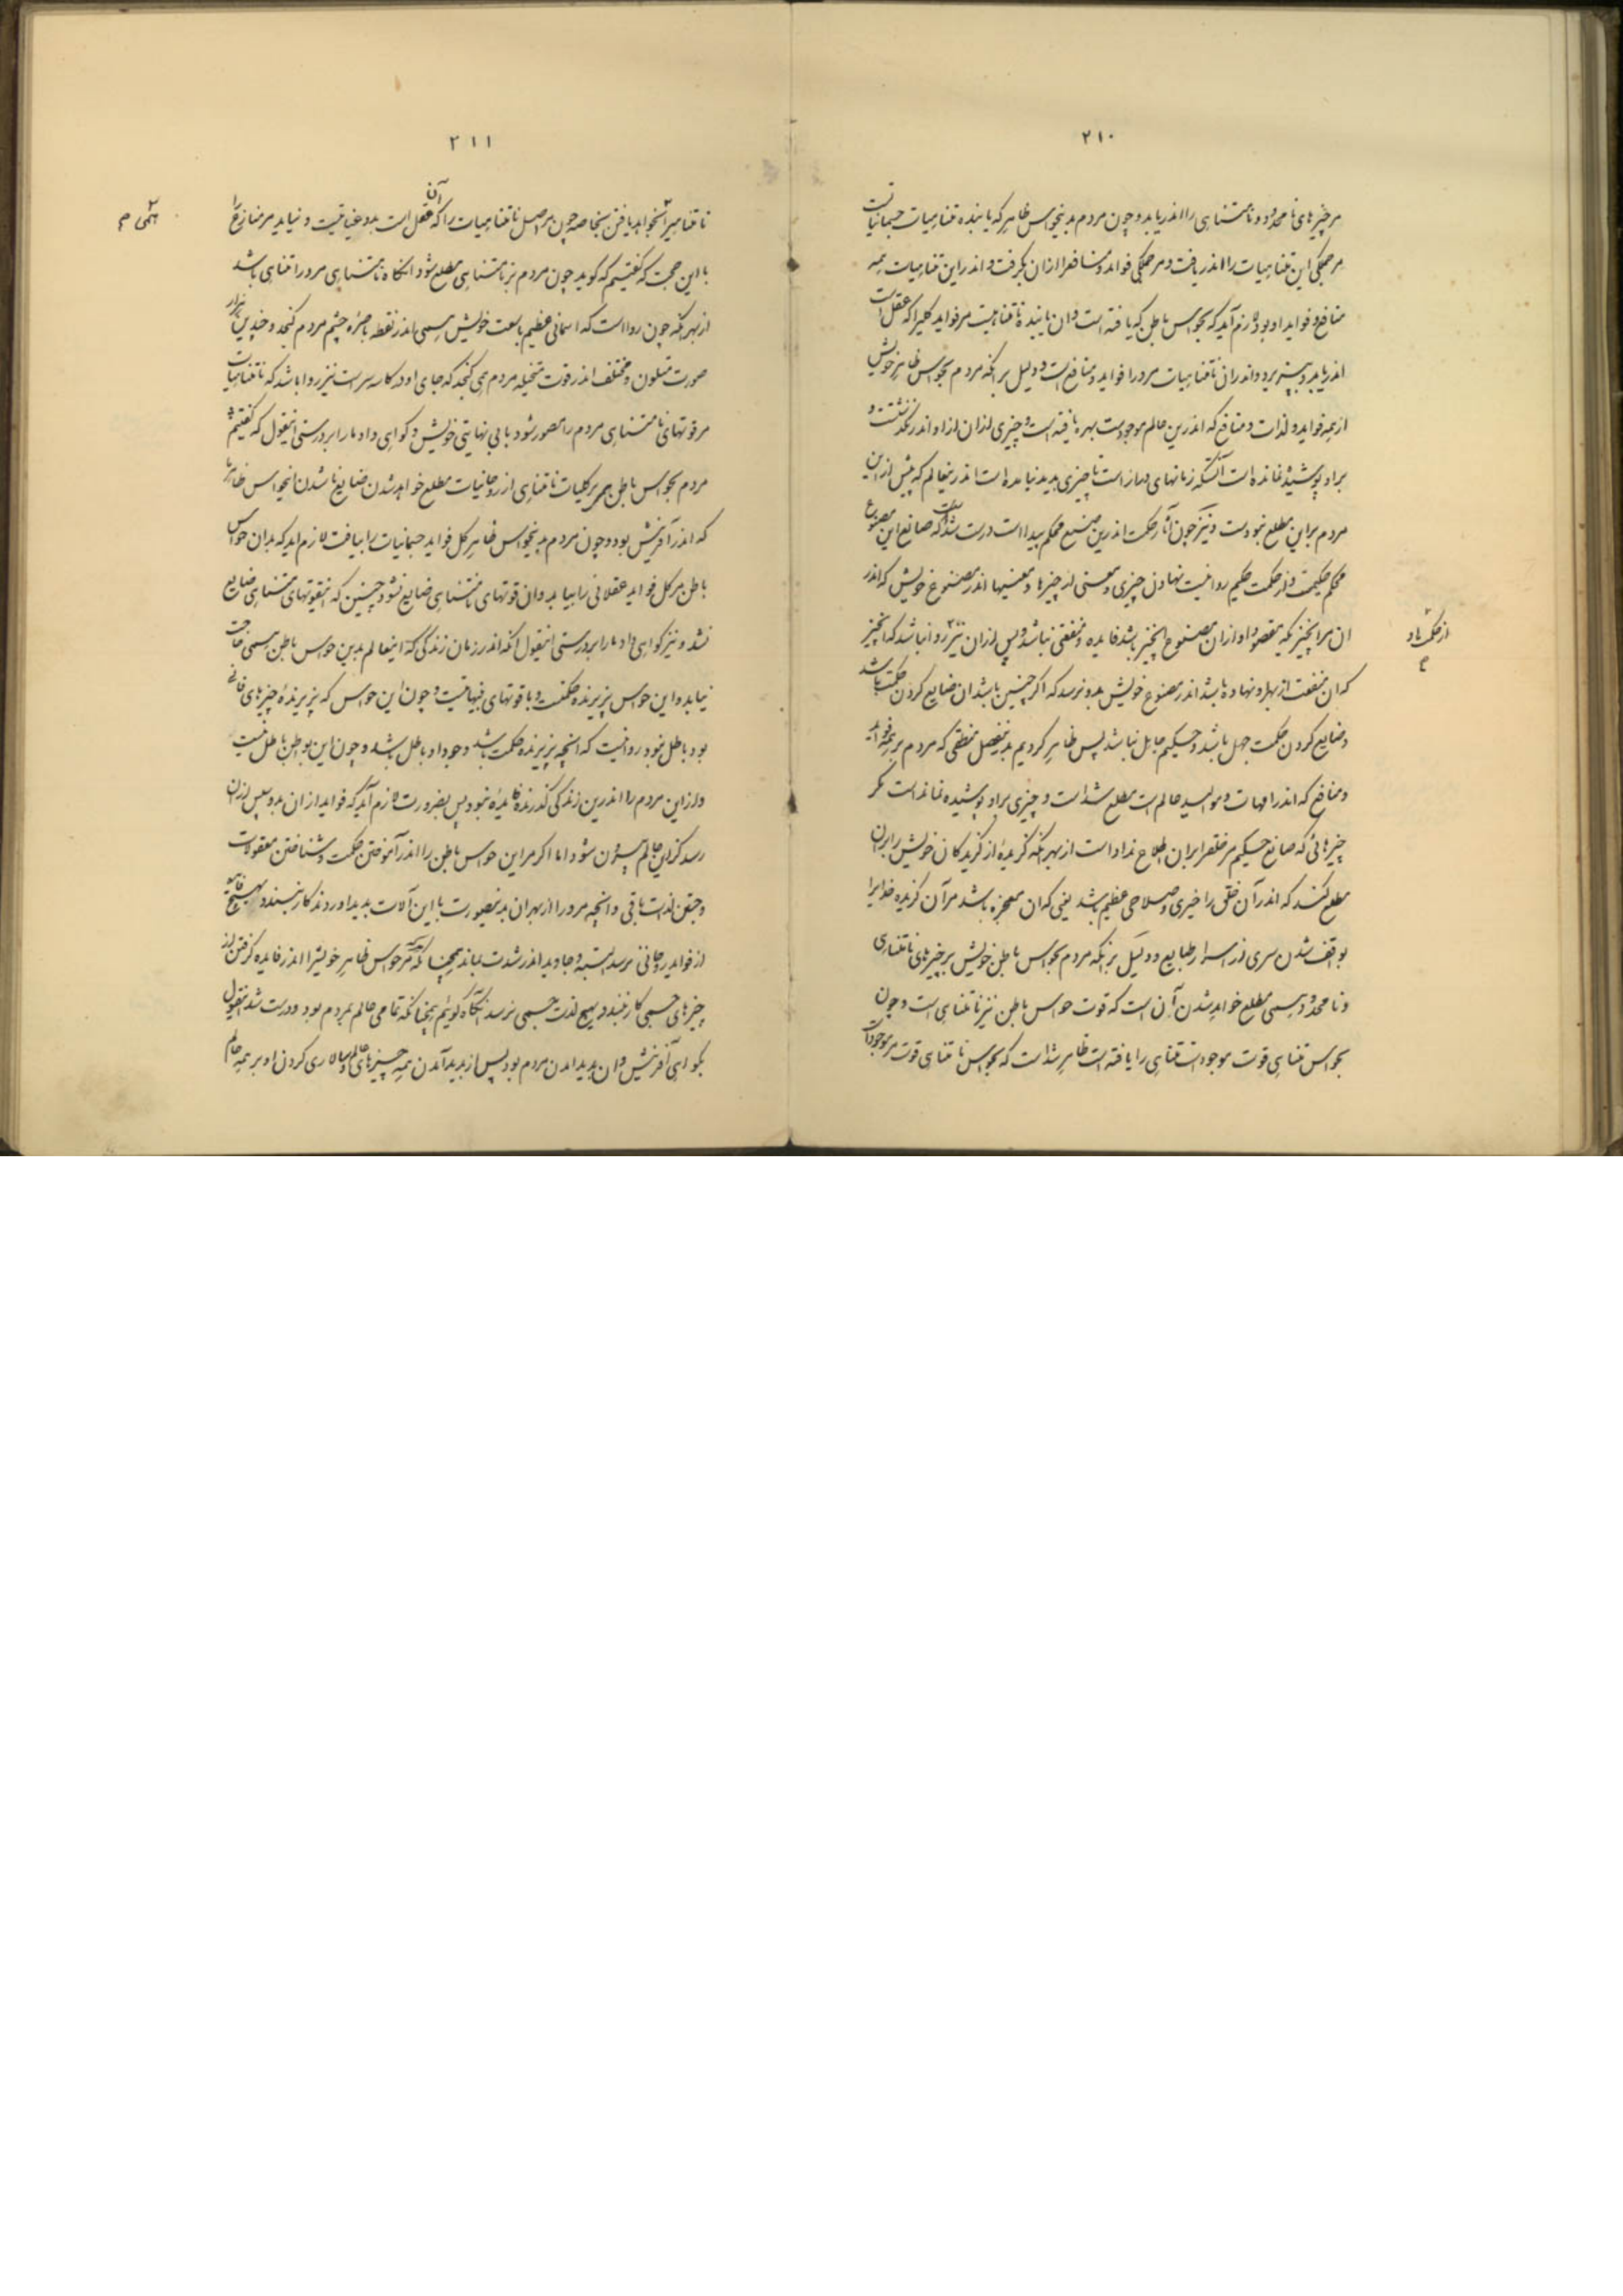 ۲۱۰
مر چیزهای نامحدود و نامتناهی را اندر یابد و چون مردم بدین حواس ظاهر که یابنده متناهیات جسمانیات است
مر همگی این متناهیات را اندر یافت و مر همگی فواید و منافع را ازان بگرفت و اندر این متناهیات همه
منافع و فواید او بود لازم آید که بحواس باطن که یافته است و ان یابنده نامتناهیست مر فواید کلیرا که عقل است
اندر یابد و بپذیرد و اندران نامتناهیات مرورا فواید و منافع است و دلیل بر آنکه مردم بحواس ظاهر خویش
از همه فواید و لذات و منافع که اندرین عالم موجودست بهره یافته است و چیزی ازان ازاو اندر نگذشتست و
براو پوشیده نمانده است آنست که زمانهای دراز است تا چیزی پدید نیامده است اندرینعالم که پیش ازین
مردم براین مطلع نبودست و نیز چون آثار حکمت اندرین صنع محکم پیداست درست شد است که صانع این مصنوع
محکم حکیمست و از حکمت حکیم روا نیست نهادن چیزی و معنی از چیزها و معنیها اندر مصنوع خویش که اندر
ان مرانچیز که مقصود او ازان مصنوع انچیز باشد فایده و منفعتی نباشد و پس ازان نیز روا نباشد که انچیز
که ان منفعت از بهر او نهاده باشد اندر مصنوع خویش بدو نرسد که اگر چنین باشد ان ضایع کردن حکمت باشد
و ضایع کردن حکمت جهل باشد و حکیم جاهل نباشد پس ظاهر کردیم بدینفصل منطقی که مردم بر همه فواید
و منافع که اندر امهات و موالید عالم است مطلع شد است و چیزی براو پوشیده نمانداست مگر
چیزهائی که صانع حکیم مر خلق را بران اطلاع نداداست از بهر آنکه گزیده از گزیدگان خویش را بران
مطلع کند که اندر آن خلق را خیری و صلاحی عظیم باشد یعنی که ان معجزه باشد مرآن گزیده خدایرا
بواقف شدن سری از اسرار طبایع و دلیل بر انکه مردم بحواس باطن خویش بر چیزهای نامتناهی
و نامحدود همی مطلع خواهد شدن آن است که قوت حواس باطن نیز نامتناهی است و چون
بحواس متناهی قوت موجودات متناهی را یافته است ظاهر شد است که بحواس نامتناهی قوت مر موجودات
از حکمت باد
م
۲۱۱
نامتناهیرا بخواهد یافتن بخاصه چون مر اصل نامتناهیات را که آن عقل است بدو عنایتیست و نیاید مر منازع را
با این حجت که گفتیم که گوید چون مردم بر نامتناهی مطلع شود انگاه نامتناهی مرورا متناهی باشد
از بهر آنکه چون روا است که اسمانی عظیم با سعت خویش همی اندر نقطه باصره چشم مردم گنجد و چندین هزار
صورت متلون و مختلف اندر قوت متخیله مردم همی گنجد که جای او در کاسه سر است نیز روا باشد که نامتناهیات
مر قوتهای نامتناهی مردم را متصور شود با بی نهایتی خویش و گواهی داد مارا بر درستی اینقول که گفتیم
مردم بحواس باطن همی بر کلیات نامتناهی از روحانیات مطلع خواهد شدن ضایع ناشدن انحواس ظاهر
که اندر آفرینش بود و چون مردم بدین حواس ظاهر کل فواید جسمانیات را بیافت لازم اید که بدان حواس
باطن مر کل فواید عقلانی را بیابد و ان قوتهای نامتناهی ضایع نشود چنین که اینقوتهای متناهی ضایع
نشد و نیز گواهی داد مارا بر درستی اینقول انکه اندر زمان زندگی که اینعالم بدین حواس باطن همی حاجت
نیابد و این حواس پزیرنده حکمتست و با قوتهای بینهایتست و چون این حواس که پزیرنده چیزهای فانی
بود باطل نبود روا نیست که انچه پزیرنده حکمت باشد وجود او باطل باشد و چون این بواطن باطل نیست
و از این مردم را اندرین زندگی گذرنده فایده نبود پس بضرورت لازم آید که فواید ازان بدو پس ازان
رسد کزاین عالم بیرون شود اما اگر مر این حواس باطن را اندر آموختن حکمت و شناختن معقولات
و جستن لذت باقی و انچه مرورا از بهران بدینصورت با این آلات پدید اوردند کار نبندد بهیچ فایده
از فواید روحانی نرسد البته و جاوید اندر شدت بماند همچنانکه هرکه مر حواس ظاهر خویشرا اندر فایده گرفتن از
چیزهای حسی کار نبندد بهیچ لذت حسی نرسد انگاه گوئیم همچنانکه تمامی عالم بمردم بود و درست شد اینقول
بگواهی آفرینش و ان پدید امدن مردم بود پس از پدید آمدن همه چیزهای عالم و سالاری کردن او بر همه عالم
همی م